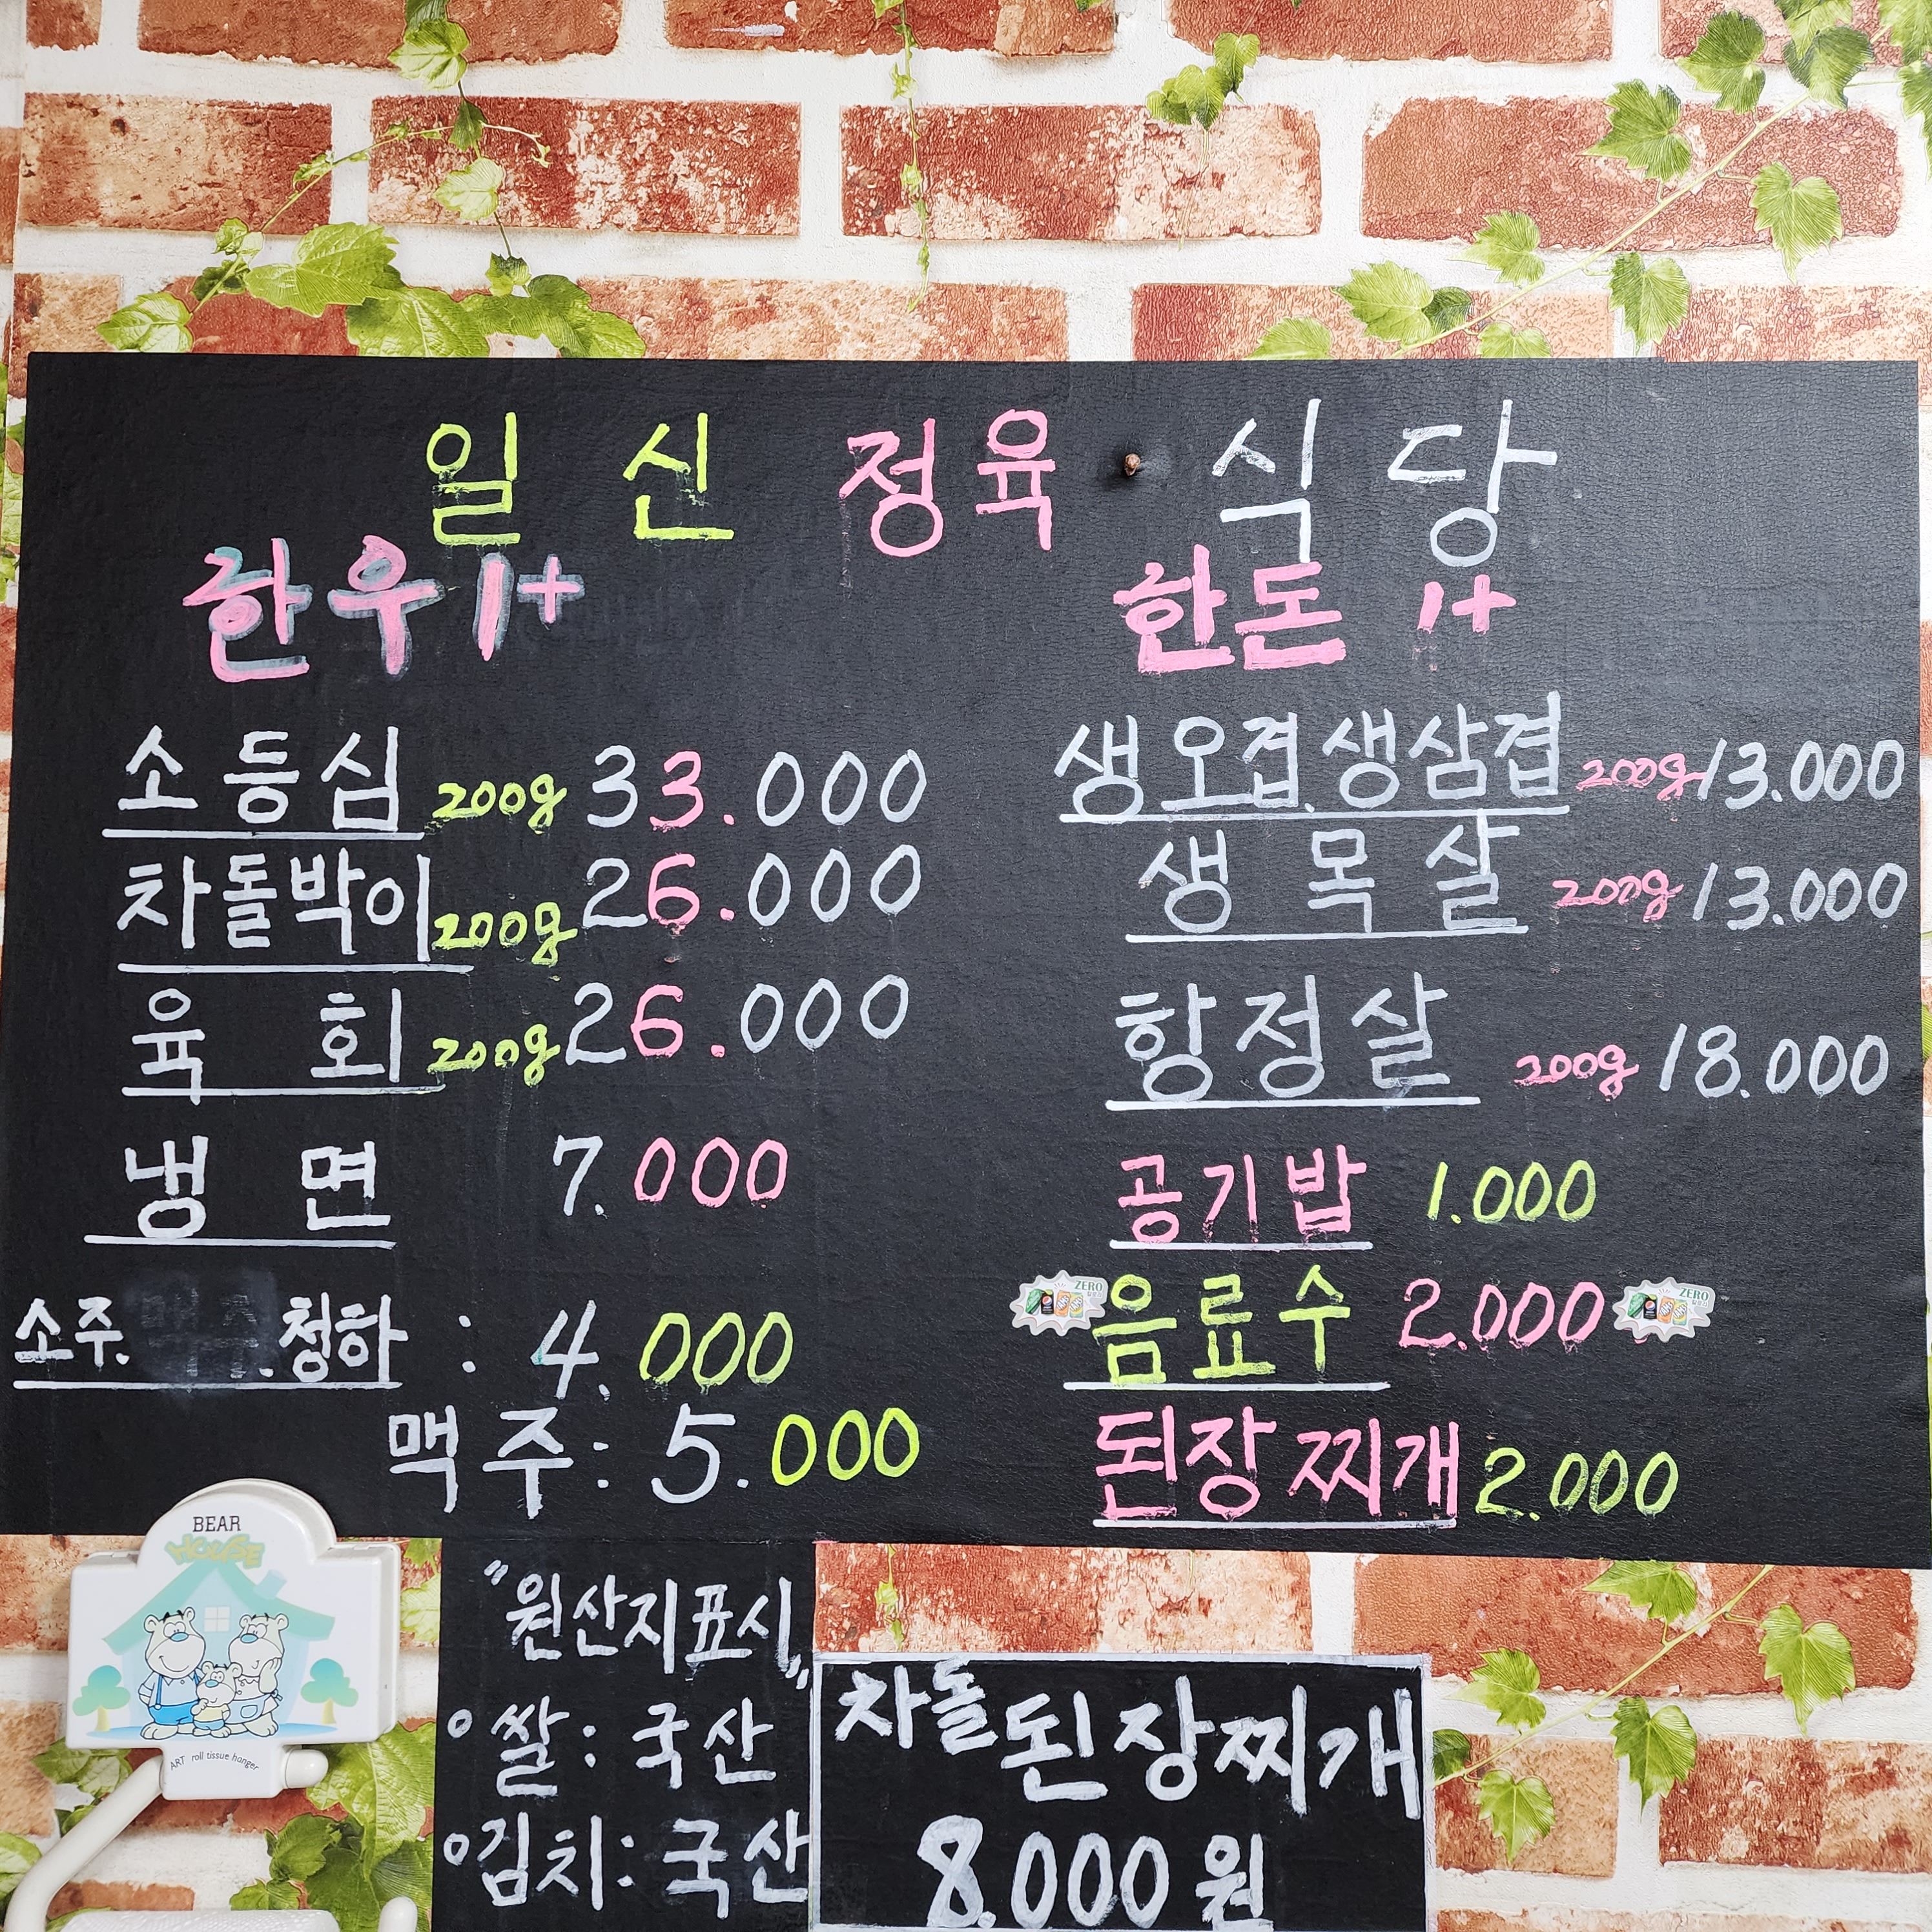 일신 정육 식당
한우 1+
소등심 200g 33.000
차돌박이 200g 26.000
육회 200g 26.000
냉면 7.000
소주. .청하 : 4.000
맥주: 5.000
한돈 1+
생오겹.생삼겹 200g 13.000
생목살 200g 13.000
항정살 200g 18.000
공기밥 1.000
ZERO
음료수 2.000
ZERO
된장찌개 2.000
BEAR
HOUSE
ART roll tissue hanger
"원산지표시"
○쌀: 국산
○김치: 국산
차돌된장찌개
8.000원